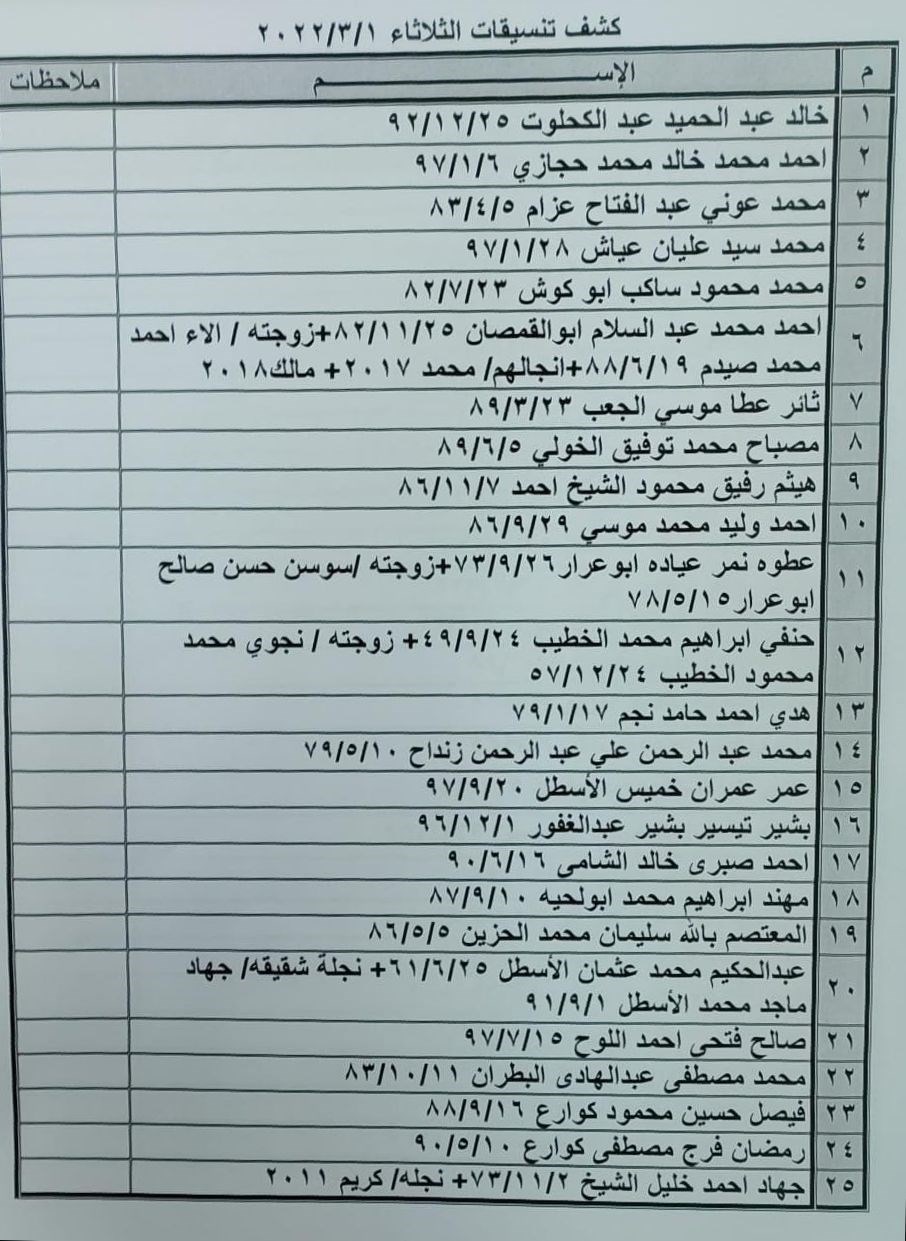 كشف تنسيقات الثلاثاء ٢٠٢٢/٣/١
م الإســـــــــــــم ملاحظات
١ خالد عبد الحميد عبد الكحلوت ٩٢/١٢/٢٥
٢ احمد محمد خالد محمد حجازي ٩٧/١/٦
٣ محمد عوني عبد الفتاح عزام ٨٣/٤/٥
٤ محمد سيد عليان عياش ٩٧/١/٢٨
٥ محمد محمود ساكب ابو كوش ٨٢/٧/٢٣
٦ احمد محمد عبد السلام ابوالقمصان ٨٢/١١/٢٥+زوجته / الاء احمد
محمد صيدم ٨٨/٦/١٩+انجالهم/ محمد ٢٠١٧+ مالك٢٠١٨
٧ ثائر عطا موسي الجعب ٨٩/٣/٢٣
٨ مصباح محمد توفيق الخولي ٨٩/٦/٥
٩ هيثم رفيق محمود الشيخ احمد ٨٦/١١/٧
١٠ احمد وليد محمد موسي ٨٦/٩/٢٩
١١ عطوه نمر عياده ابوعرار٧٣/٩/٢٦+زوجته /سوسن حسن صالح
ابوعرار٧٨/٥/١٥
١٢ حنفي ابراهيم محمد الخطيب ٤٩/٩/٢٤+ زوجته / نجوي محمد
محمود الخطيب ٥٧/١٢/٢٤
١٣ هدي احمد حامد نجم ٧٩/١/١٧
١٤ محمد عبد الرحمن علي عبد الرحمن زنداح ٧٩/٥/١٠
١٥ عمر عمران خميس الأسطل ٩٧/٩/٢٠
١٦ بشير تيسير بشير عبدالغفور ٩٦/١٢/١
١٧ احمد صبرى خالد الشامى ٩٠/٦/١٦
١٨ مهند ابراهيم محمد ابولحيه ٨٧/٩/١٠
١٩ المعتصم بالله سليمان محمد الحزين ٨٦/٥/٥
٢٠ عبدالحكيم محمد عثمان الأسطل ٦١/٦/٢٥+ نجلة شقيقه/ جهاد
ماجد محمد الأسطل ٩١/٩/١
٢١ صالح فتحى احمد اللوح ٩٧/٧/١٥
٢٢ محمد مصطفى عبدالهادى البطران ٨٣/١٠/١١
٢٣ فيصل حسين محمود كوارع ٨٨/٩/١٦
٢٤ رمضان فرج مصطفى كوارع ٩٠/٥/١٠
٢٥ جهاد احمد خليل الشيخ ٧٣/١١/٢+ نجله/ كريم ٢٠١١